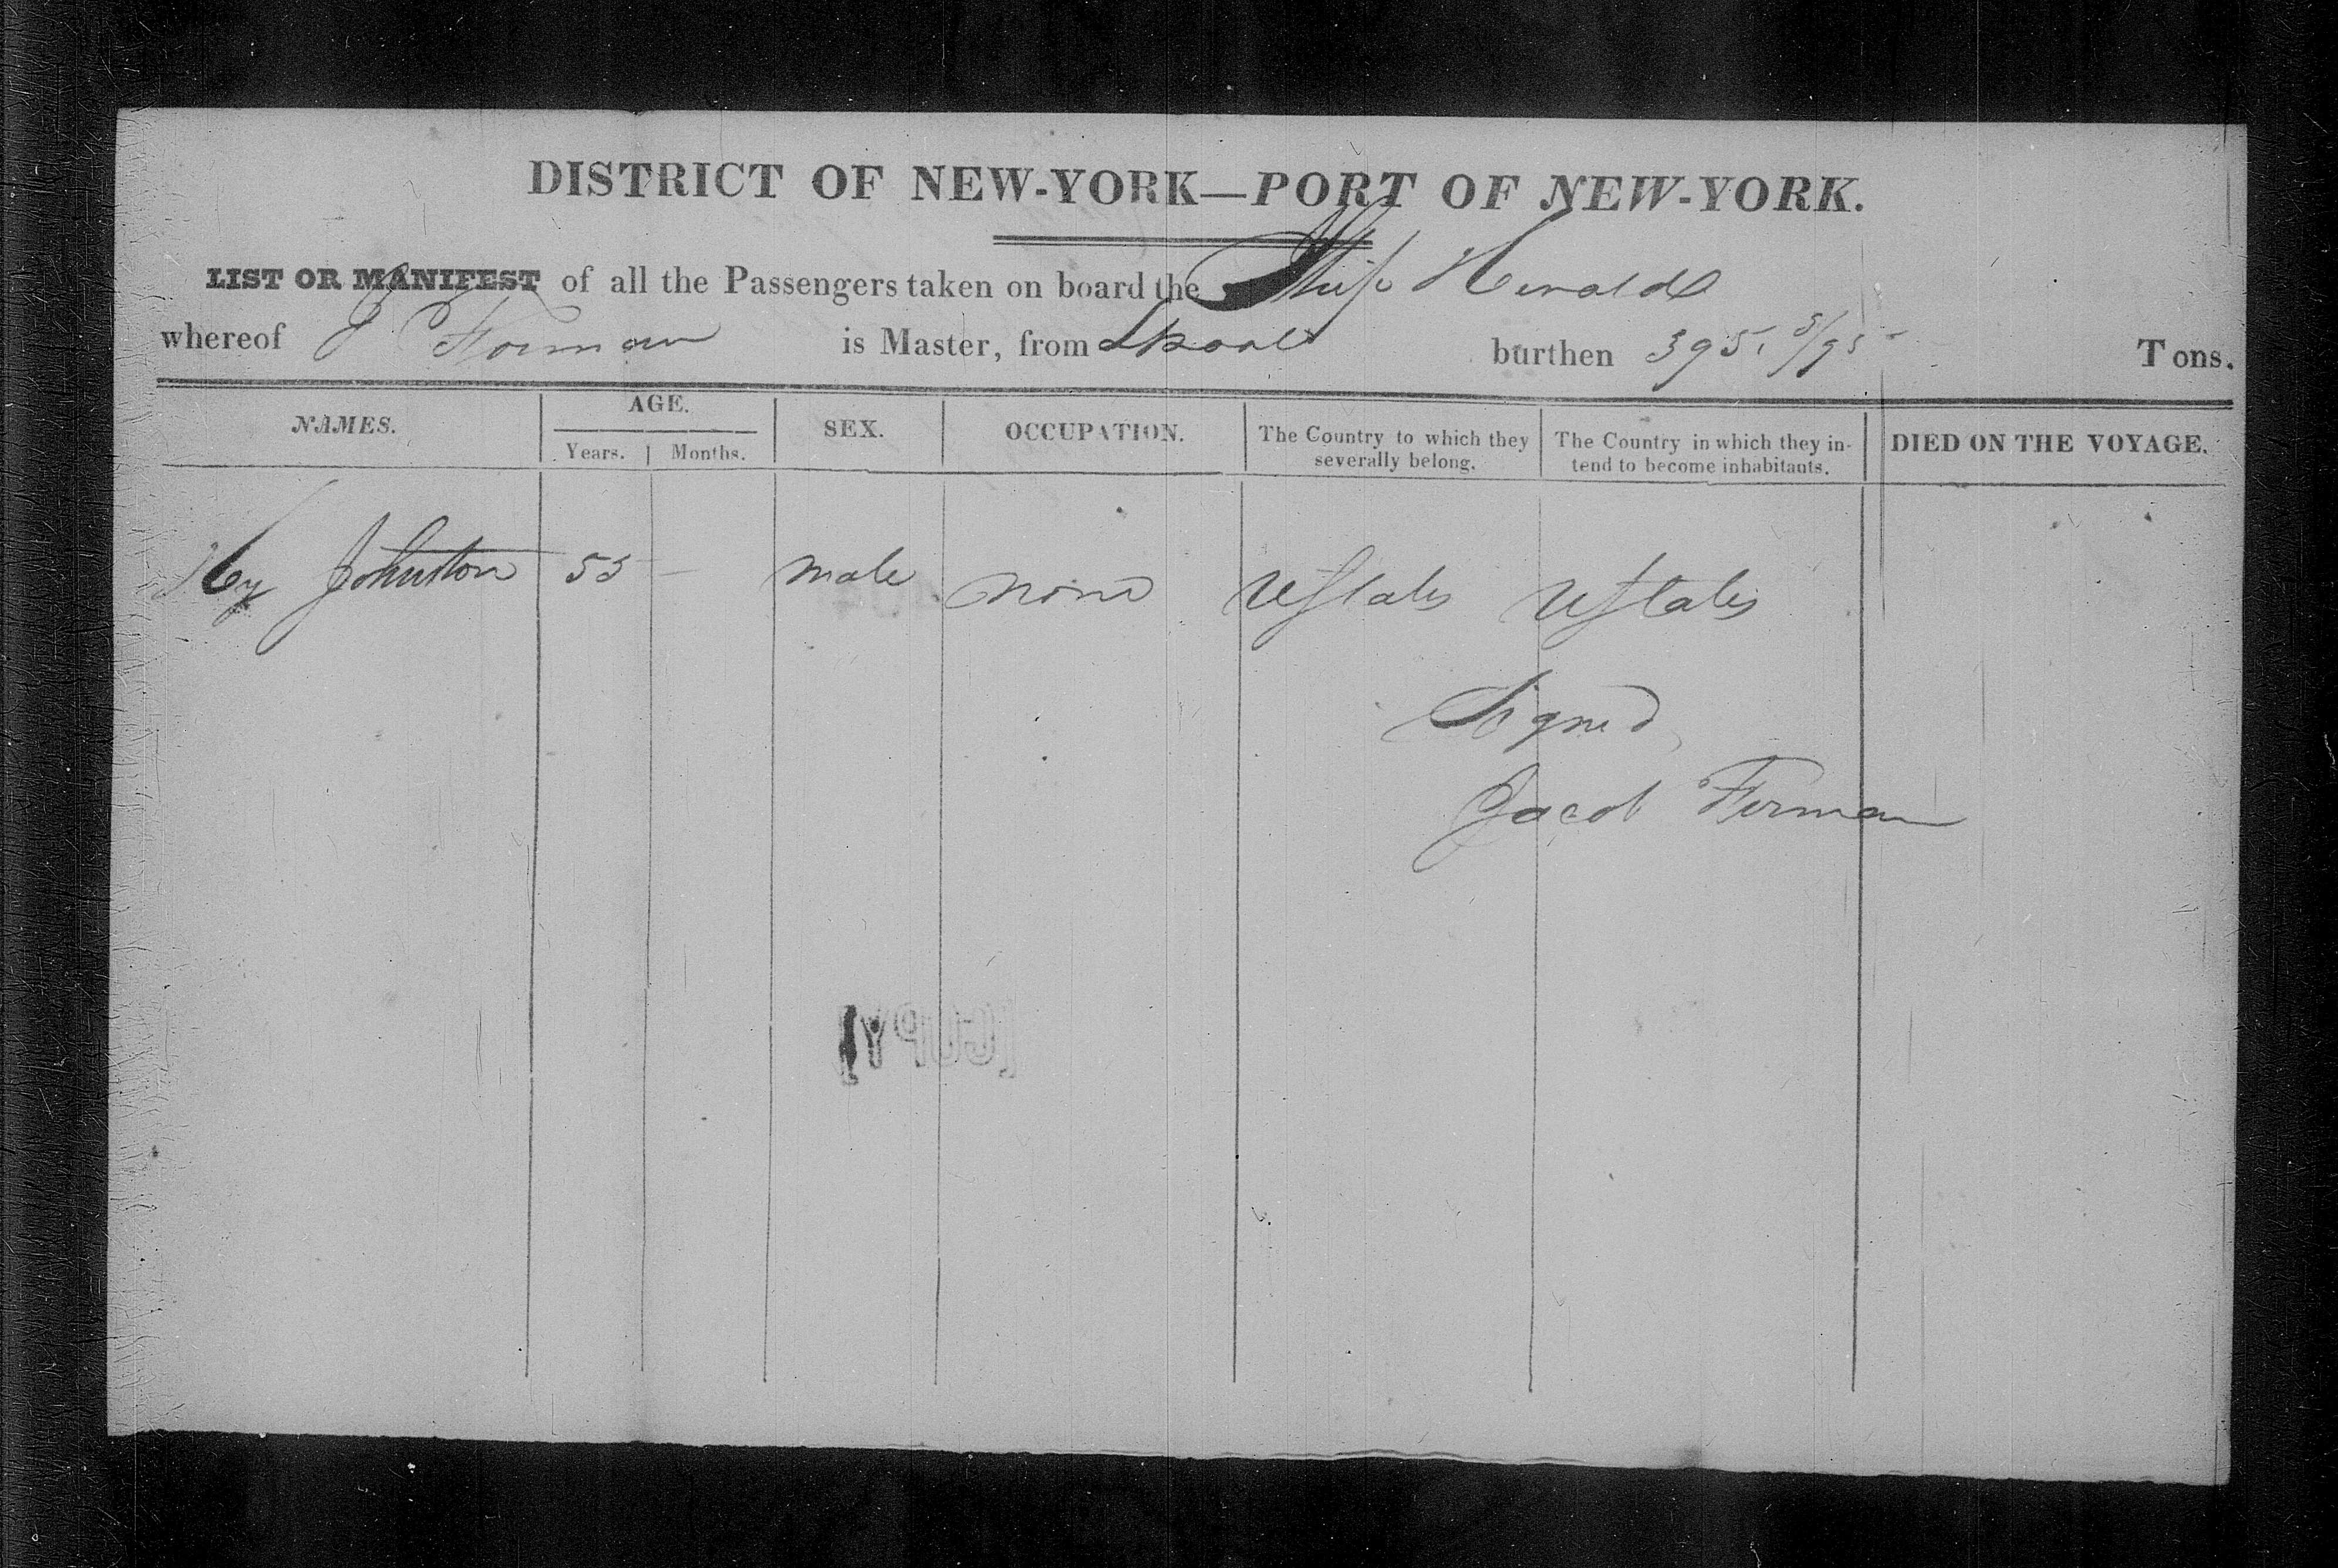 DISTRICT OF NEW-YORK—PORT OF NEW-YORK.
LIST OR MANIFEST of all the Passengers taken on board the Ship Herald
whereof J Forman is Master, from Lpool burthen 395 5/95 Tons.
NAMES. AGE. SEX. OCCUPATION. The Country to which they severally belong. The Country in which they intend to become inhabitants. DIED ON THE VOYAGE.
Years. Months.
Hy Johnston 55 — male none UStates UStates
Signed
Jacob Forman
[COPY]